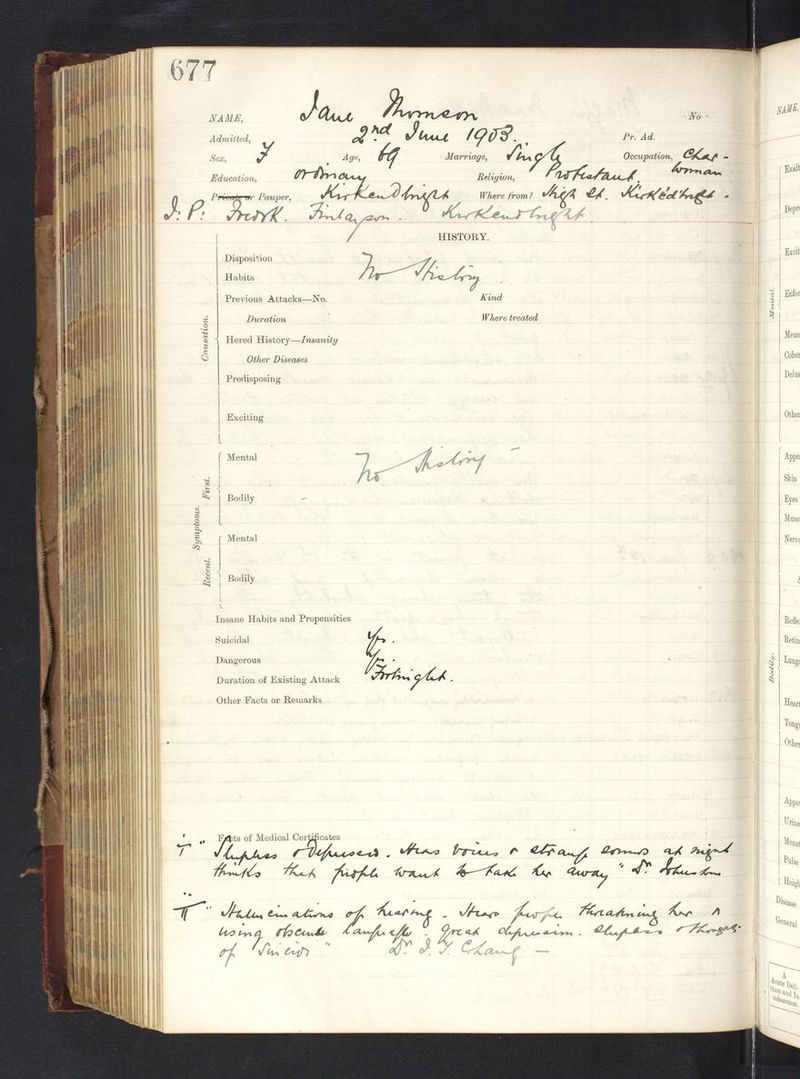 677
NAME, Jane Thomson No
Admitted, 2nd June 1903. Pr. Ad.
Sex, F Age, 69 Marriage, Single Occupation, Char-
woman
Education, ordinary Religion, Protestant
Private or Pauper, Kirkcudbright Where from? High St. Kirkcudbright.
I: P: Fredrk. Finlayson. Kirkcudbright
HISTORY.
Causation.
Disposition
Habits No History.
Previous Attacks—No. Kind
Duration Where treated
Hered History—Insanity
Other Diseases
Predisposing
Exciting
Symptoms.
First.
Mental No History –
Bodily
Recent.
Mental
Bodily
Insane Habits and Propensities
Suicidal Yes.
Dangerous
Duration of Existing Attack Fortnight.
Other Facts or Remarks
Facts of Medical Certificates
I "Sleepless & depressed. Hears voices & strange sounds at night
thinks that people want to take her away" Dr. Johnston
II "Hallucinations of hearing. Hears people threatening her &
using obscene language. Great depression. Sleepless & thoughts
of Suicide" Dr.
NAME,
Mental.
Bodily.
Appe
Skin
Eyes
Other
Urine
Pulse
Heigh
Disease
General